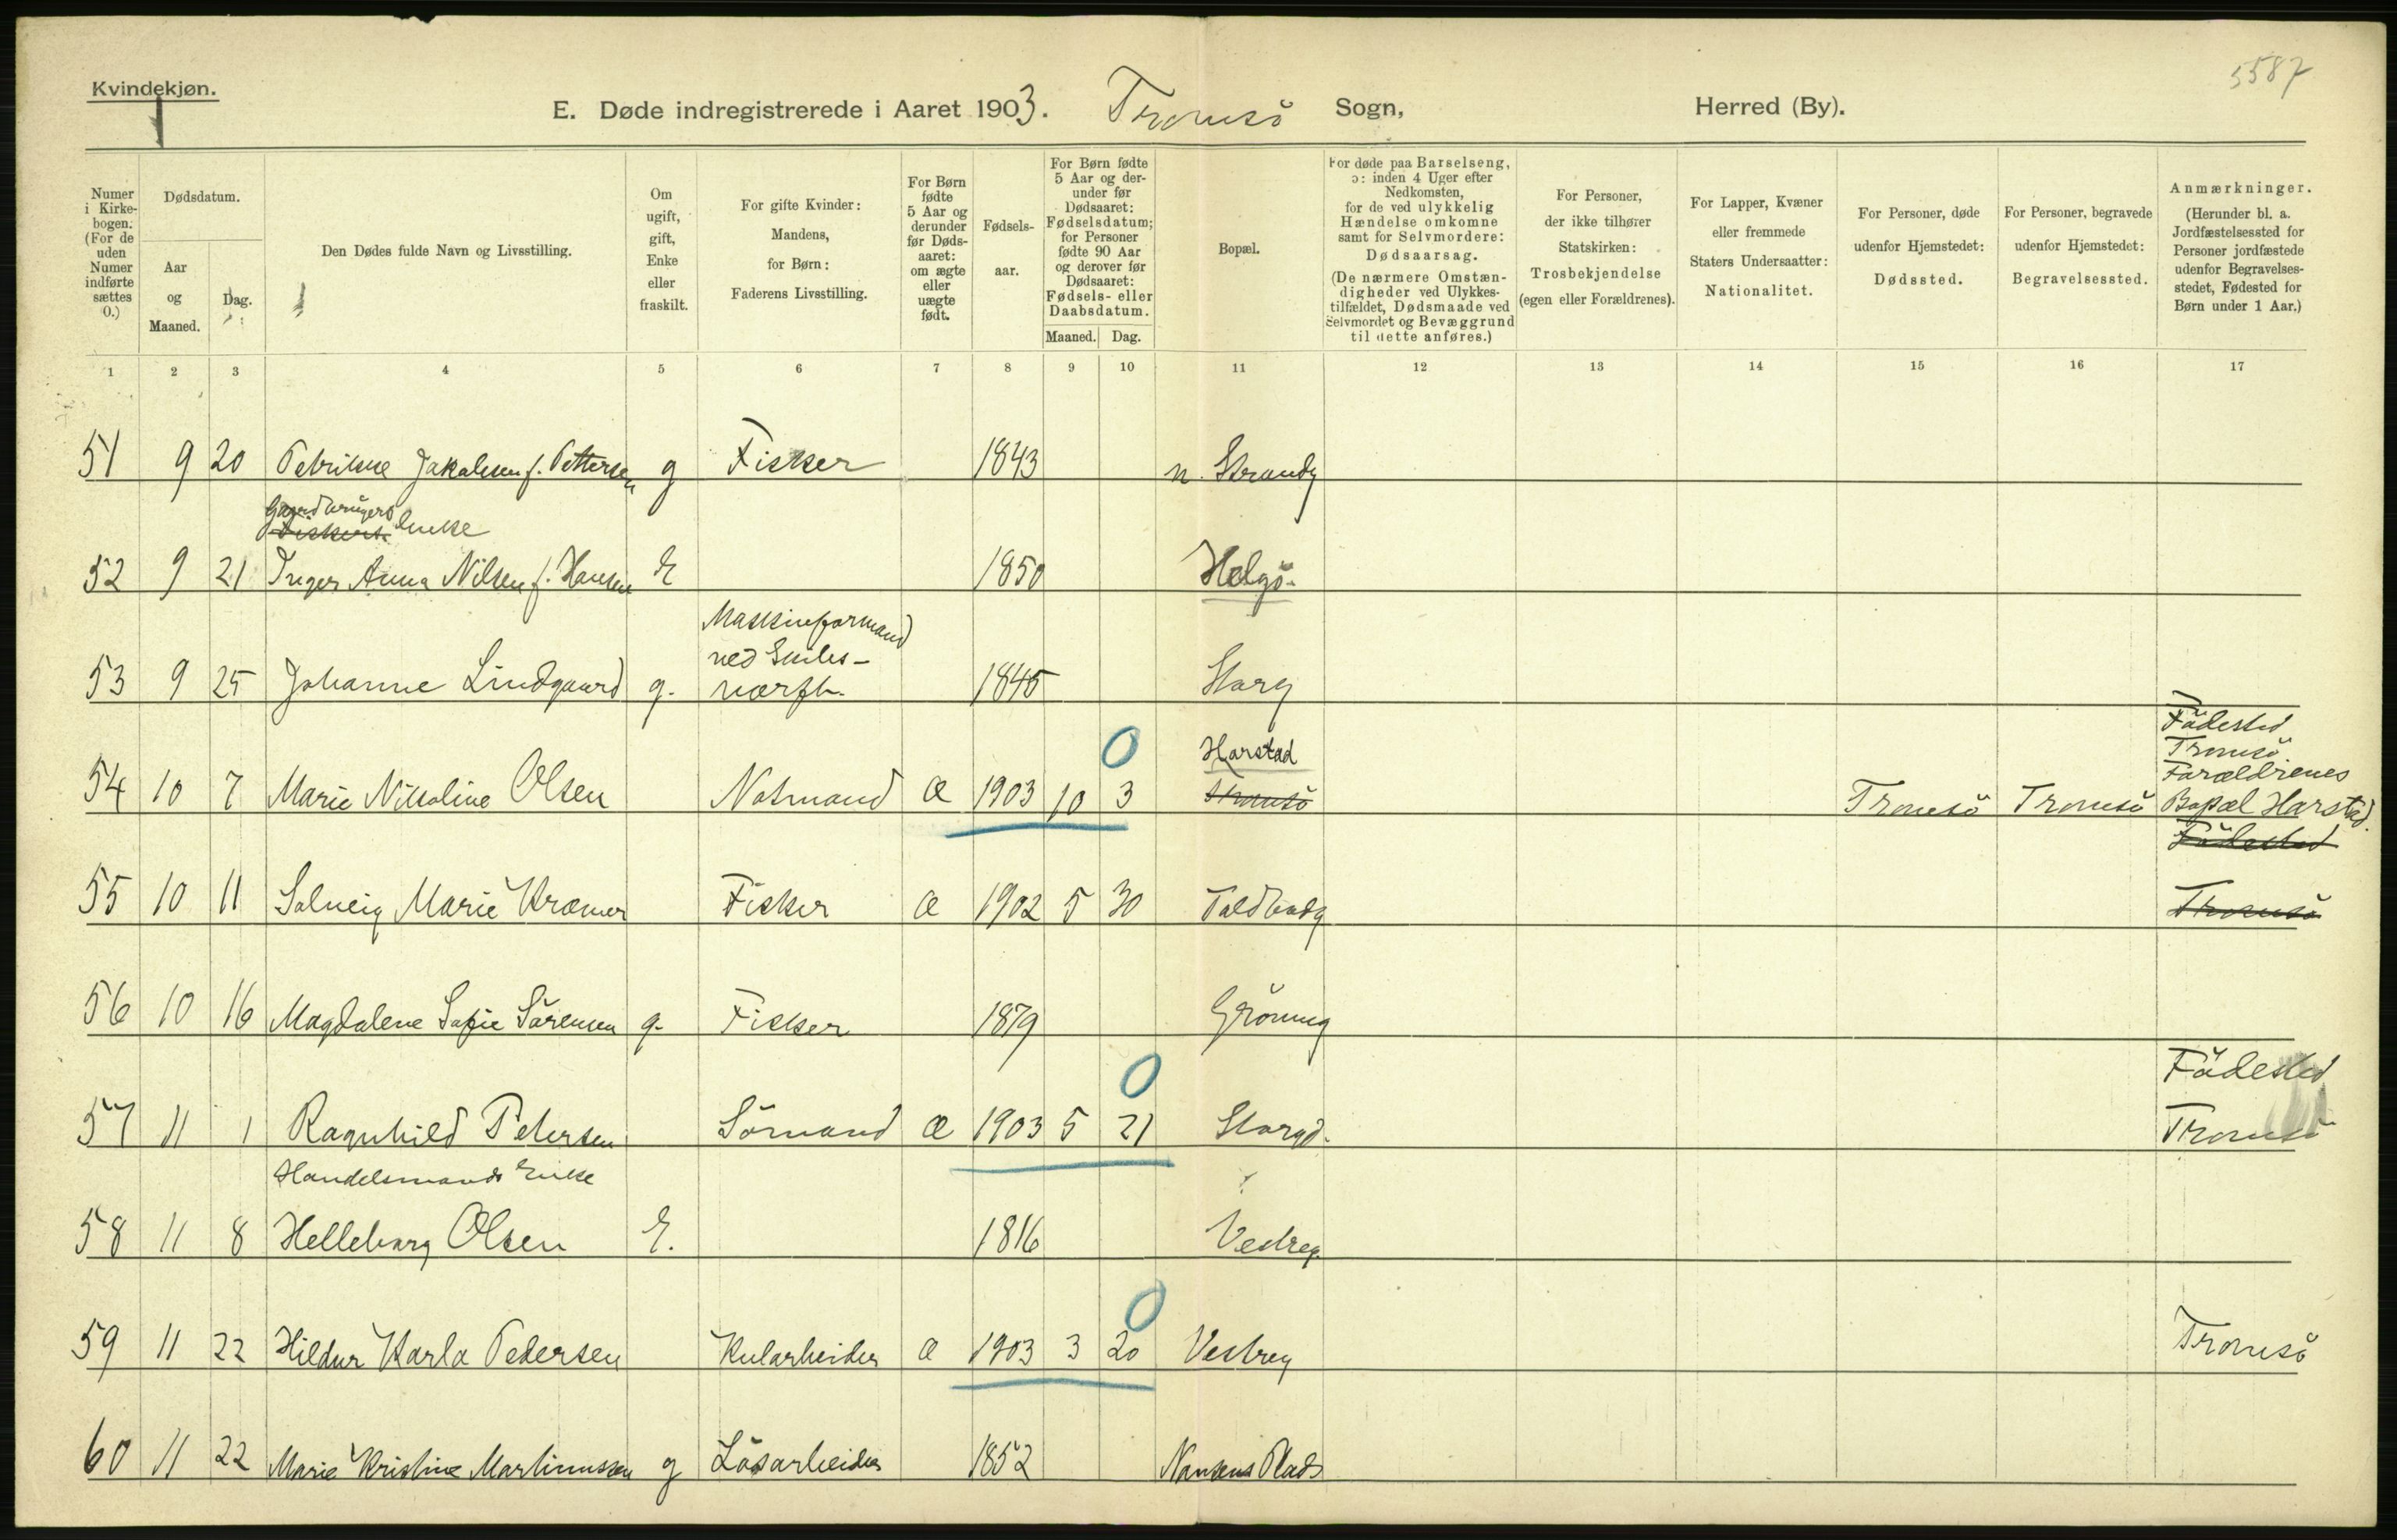 Kvindekjøn.
5587
E. Døde indregistrerede i Aaret 1903. Tromsö Sogn, Herred (By).
Numer i Kirke-bogen. (For de uden Numer indførte sættes 0.)
Dødsdatum.
Aar og Maaned.
Dag.
Den Dødes fulde Navn og Livsstilling.
Om ugift, gift, Enke eller fraskilt.
For gifte Kvinder: Mandens, for Børn: Faderens Livsstilling.
For Børn fødte 5 Aar og derunder før Døds-aaret: om ægte eller uægte født.
Fødsels-aar.
For Børn fødte 5 Aar og der-under før Dødsaaret: Fødselsdatum; for Personer fødte 90 Aar og derover før Dødsaaret: Fødsels- eller Daabsdatum.
Maaned. Dag.
Bopæl.
For døde paa Barselseng, ɔ: inden 4 Uger efter Nedkomsten, for de ved ulykkelig Hændelse omkomne samt for Selvmordere: Dødsaarsag. (De nærmere Omstæn-digheder ved Ulykkes-tilfældet, Dødsmaade ved Selvmordet og Bevæggrund til dette anføres.)
For Personer, der ikke tilhører Statskirken: Trosbekjendelse (egen eller Forældrenes).
For Lapper, Kvæner eller fremmede Staters Undersaatter: Nationalitet.
For Personer, døde udenfor Hjemstedet: Dødssted.
For Personer, begravede udenfor Hjemstedet: Begravelsessted.
Anmærkninger. (Herunder bl. a. Jordfæstelsessted for Personer jordfæstede udenfor Begravelses-stedet, Fødested for Børn under 1 Aar.)
1 2 3 4 5 6 7 8 9 10 11 12 13 14 15 16 17
51 9 20 Petrikke Jakobsen f. Pettersen g Fisker 1843 n. Strandg
Gaardbrugers Fiskers Enke
52 9 21 Inger Anna Nilsen f. Hansen E 1850 Helgö.
Maskinformand
ved
53 9 25 Johanne Lindgaard g. værft. 1845 Storg
Födested
0 Harstad Tromsö
Forældrenes
54 10 7 Marie Nikoline Olsen Notmand Æ 1903 10 3 Tromsö Tromsö Tromsö Bopæl Harstad.
Födested
55 10 11 Solveig Marie Kræmer Fisker Æ 1902 5 30 Toldbodg Tromsö
56 10 16 Magdalene Sofie Sörensen g. Fisker 1879 Grönneg
0 Födested
57 11 1 Ragnhild Petersen Sömand Æ 1903 5 21 Storgd. Tromsö
Handelsmands Enke
58 11 8 Helleborg Olsen E. 1816 Vestreg.
0
59 11 22 Hildur Karla Pedersen Kularbeider Æ 1903 3 20 Vestreg Tromsö
60 11 22 Marie Kristine Martinussen g Lösarbeider 1852 Nansens Plads